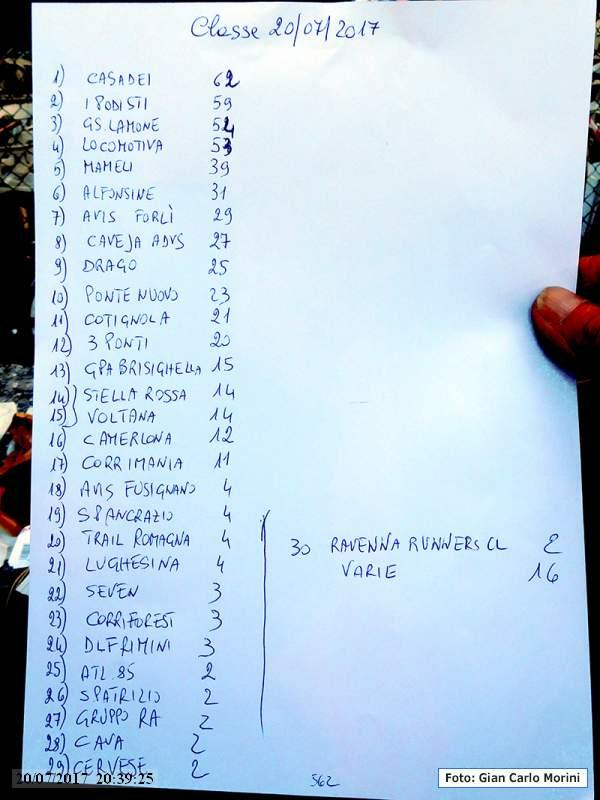 Classe 20/07/2017
1) CASADEI 62
2) I PODISTI 59
3) GS. LAMONE 54
4) LOCOMOTIVA 53
5) MAMELI 39
6) ALFONSINE 31
7) AVIS FORLÌ 29
8) CAVEJA ADVS 27
9) DRAGO 25
10) PONTE NUOVO 23
11) COTIGNOLA 21
12) 3 PONTI 20
13) GPA BRISIGHELLA 15
14) STELLA ROSSA 14
15) VOLTANA 14
16) CAMERLONA 12
17) CORRIMANIA 11
18) AVIS FUSIGNANO 4
19) S PANCRAZIO 4
20) TRAIL ROMAGNA 4
21) LUGHESINA 4
22) SEVEN 3
23) CORRIFOREST 3
24) DLF RIMINI 3
25) ATL. 85 2
26) S PATRIZIO 2
27) GRUPPO RA 2
28) CAVA 2
29) CERVESE 2
30 RAVENNA RUNNERS CL 2
VARIE 16
562
20/07/2017 20:39:25
Foto: Gian Carlo Morini